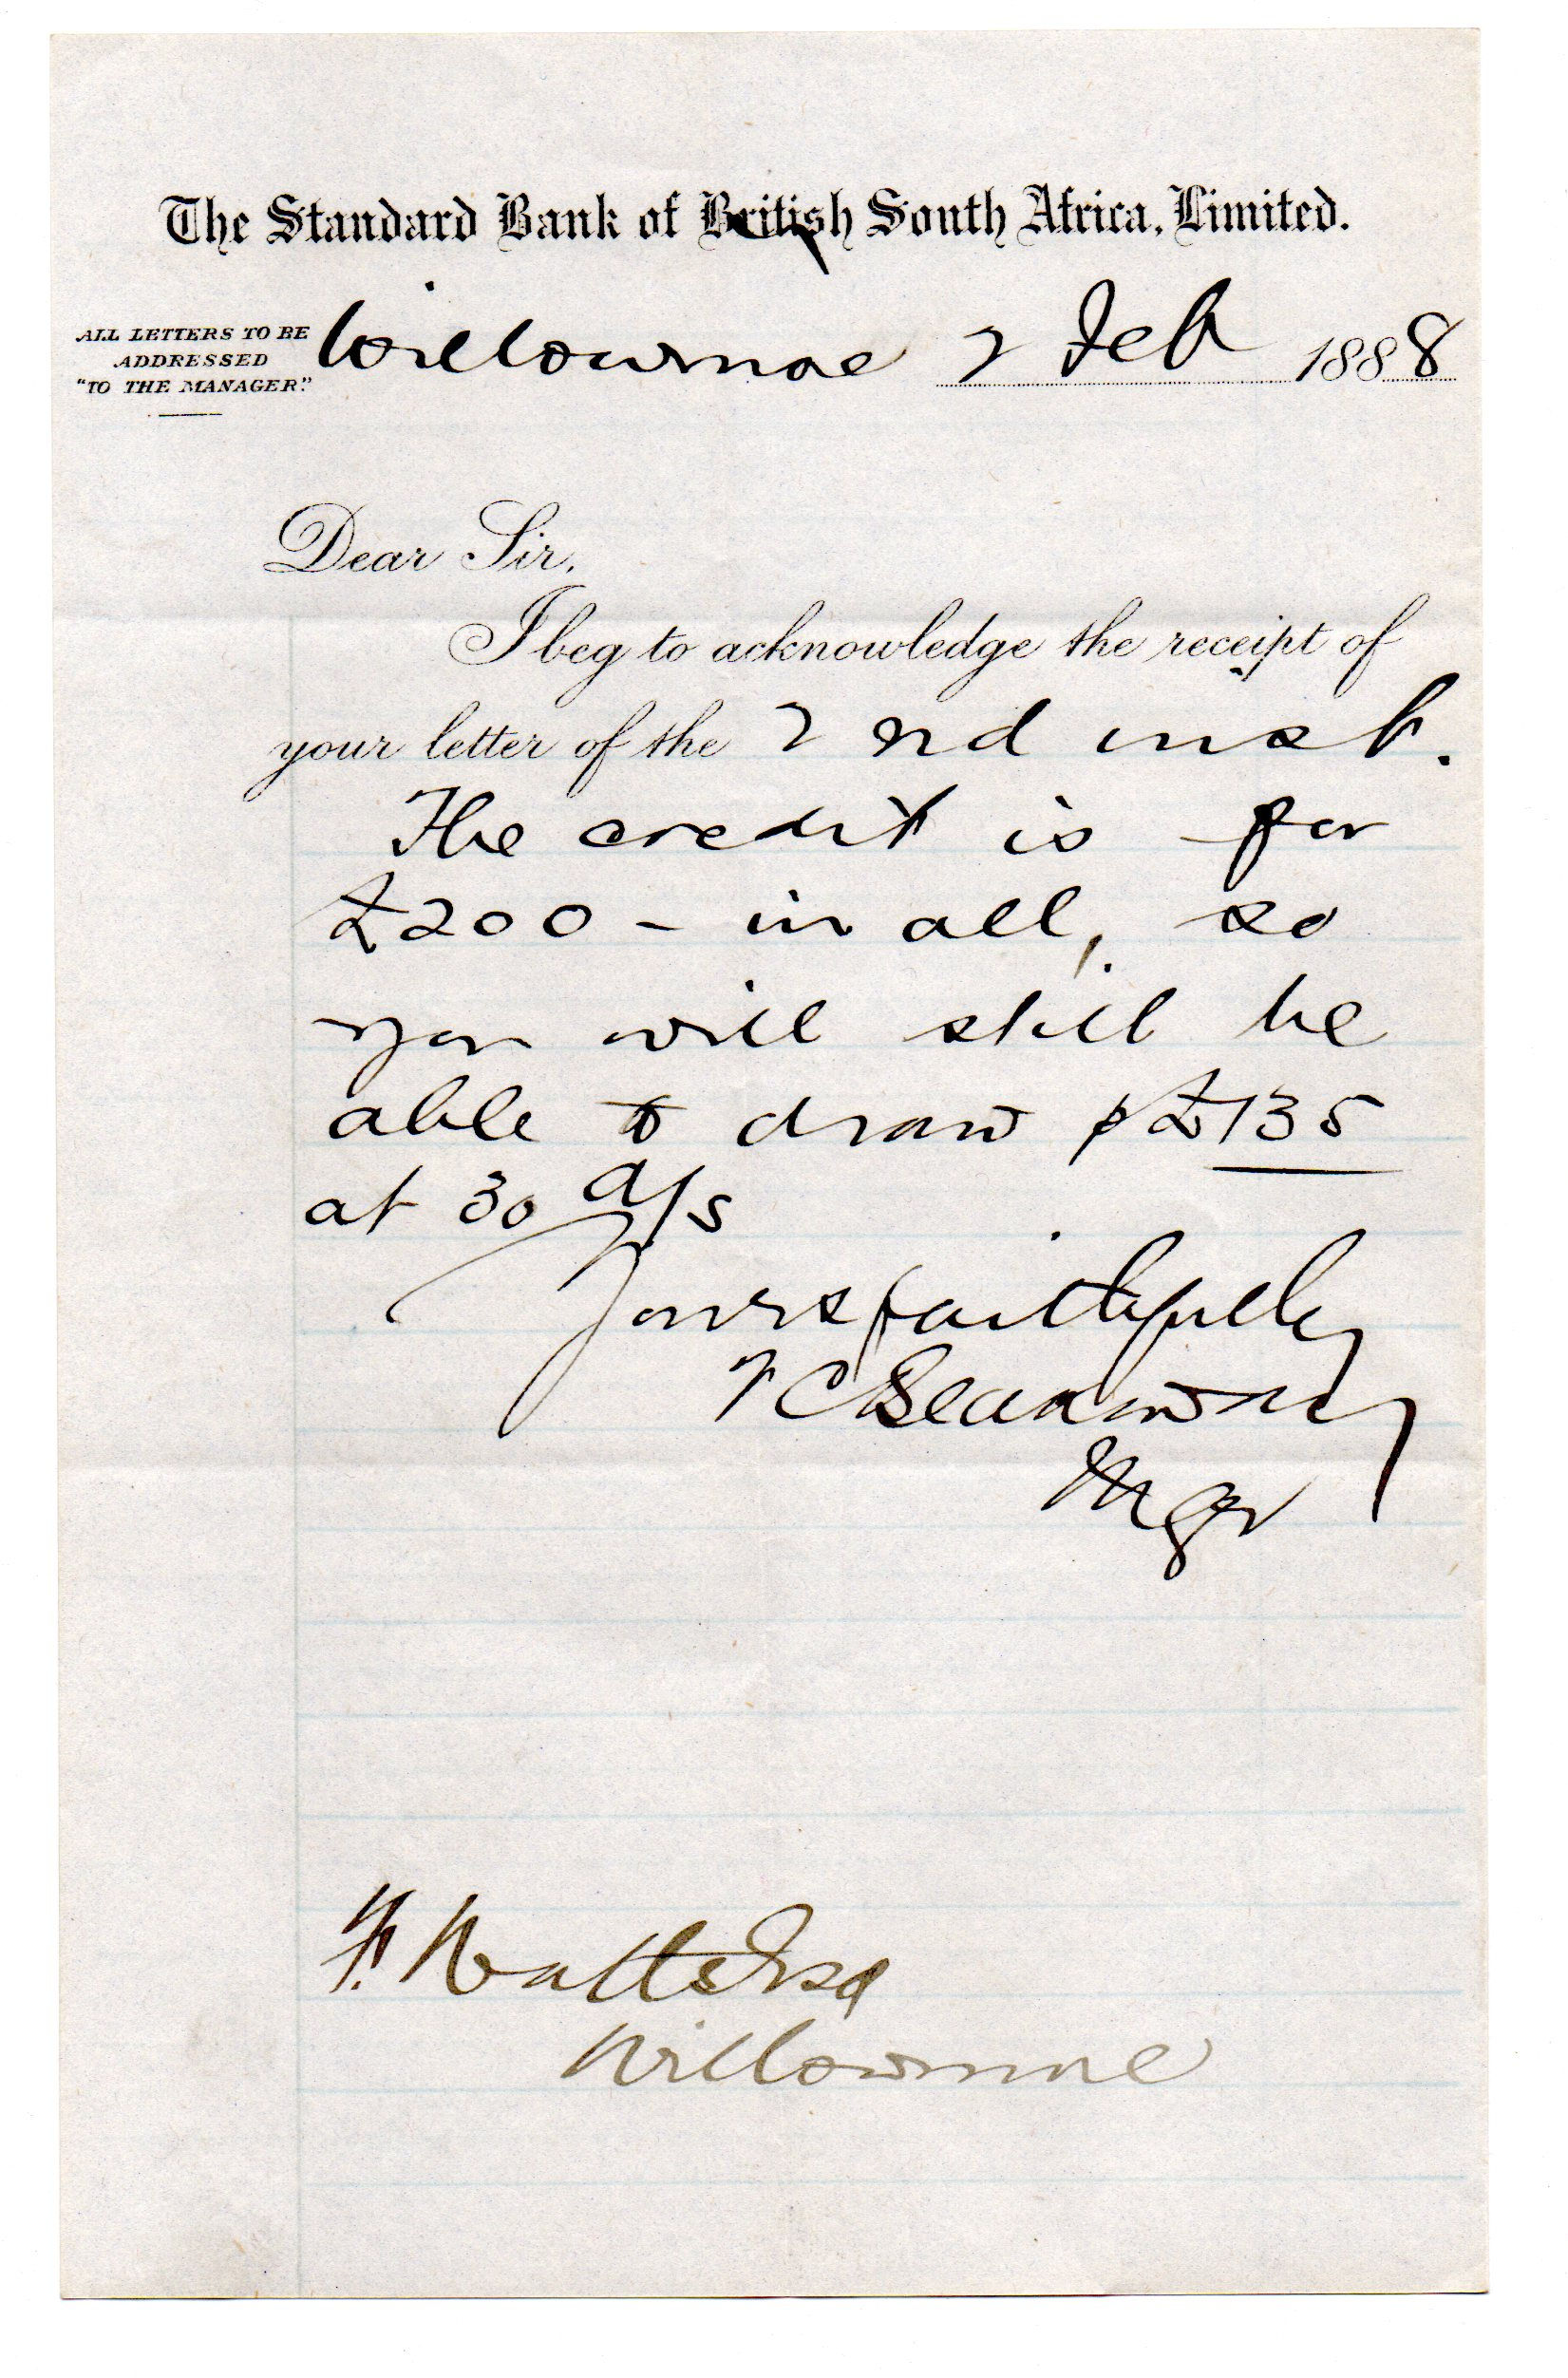 The Standard Bank of British South Africa, Limited.
ALL LETTERS TO BE
ADDRESSED
"TO THE MANAGER."
Willowmore 2 Feb 1888
Dear Sir,
I beg to acknowledge the receipt of
your letter of the 2nd inst.
The credit is for
£200 - in all, so
you will still be
able to draw £135
at 30 d/s
Yours faithfully
Mgr
Watts Esq
Willowmore